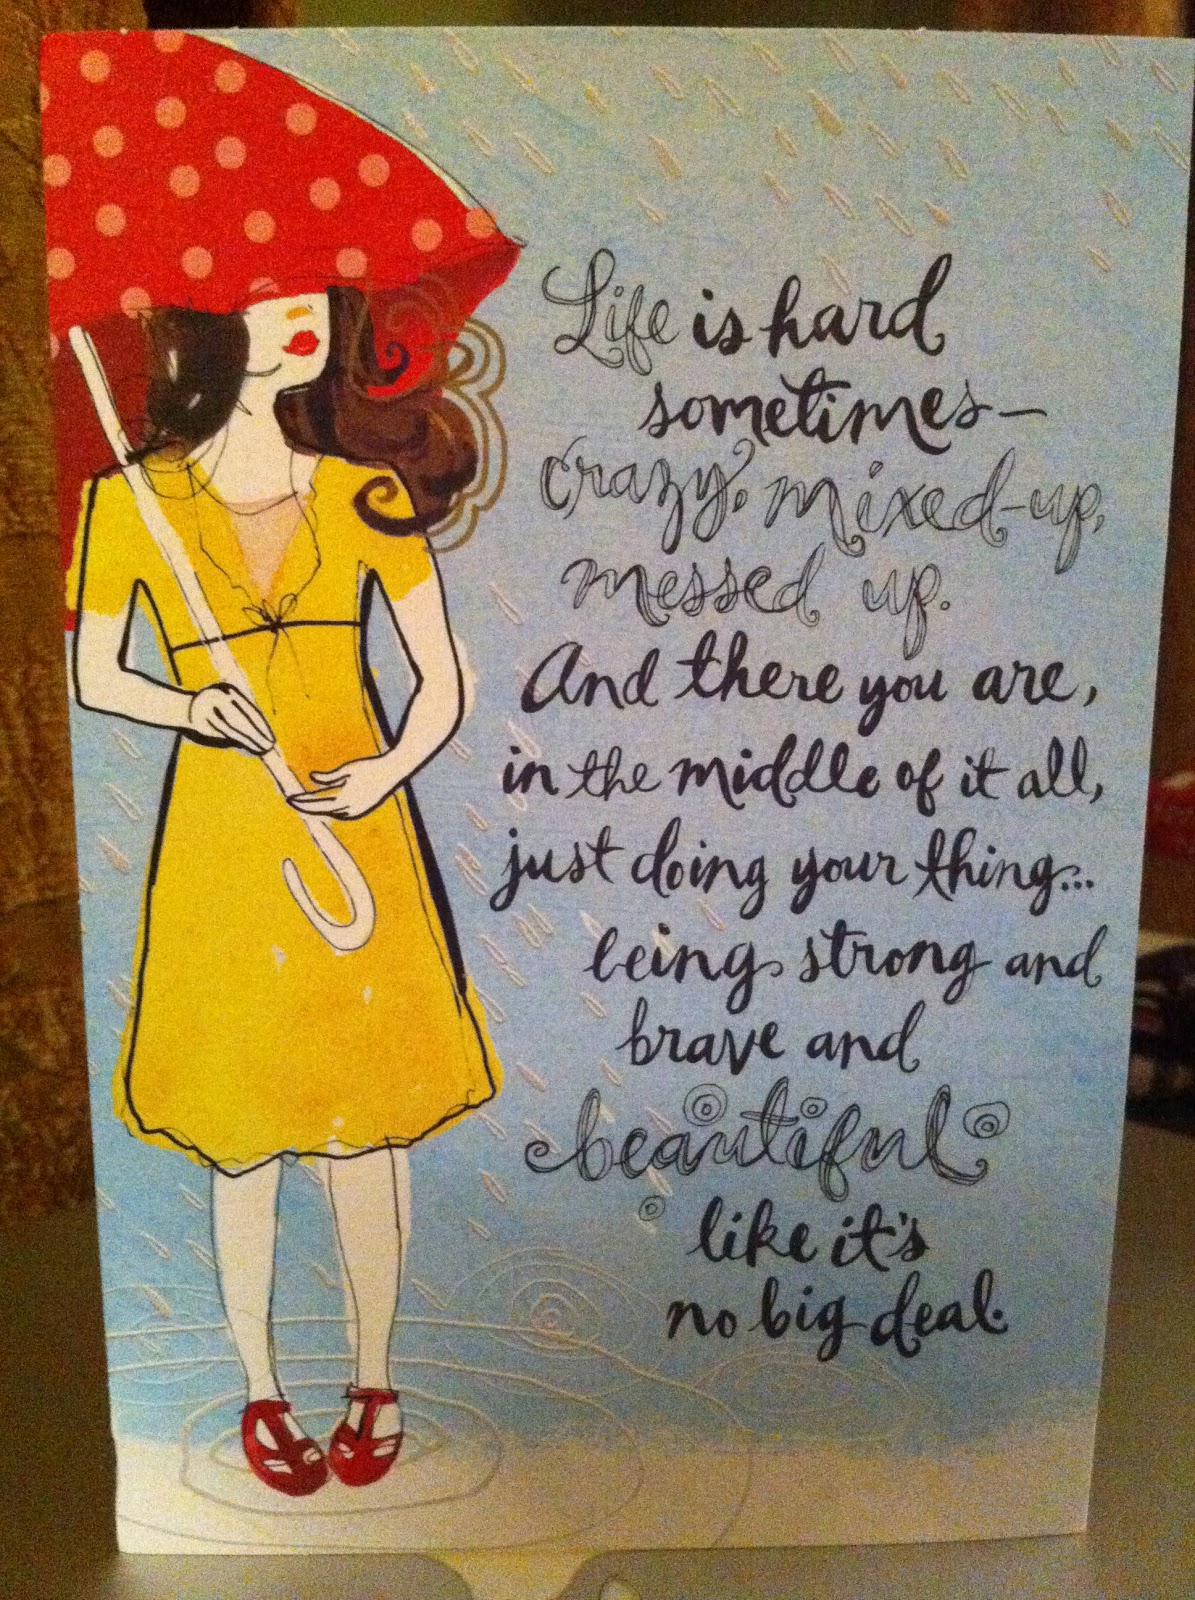 Life is hard
sometimes—
crazy, mixed-up,
messed up.
And there you are,
in the middle of it all,
just doing your thing...
being strong and
brave and
beautiful
like it's
no big deal.